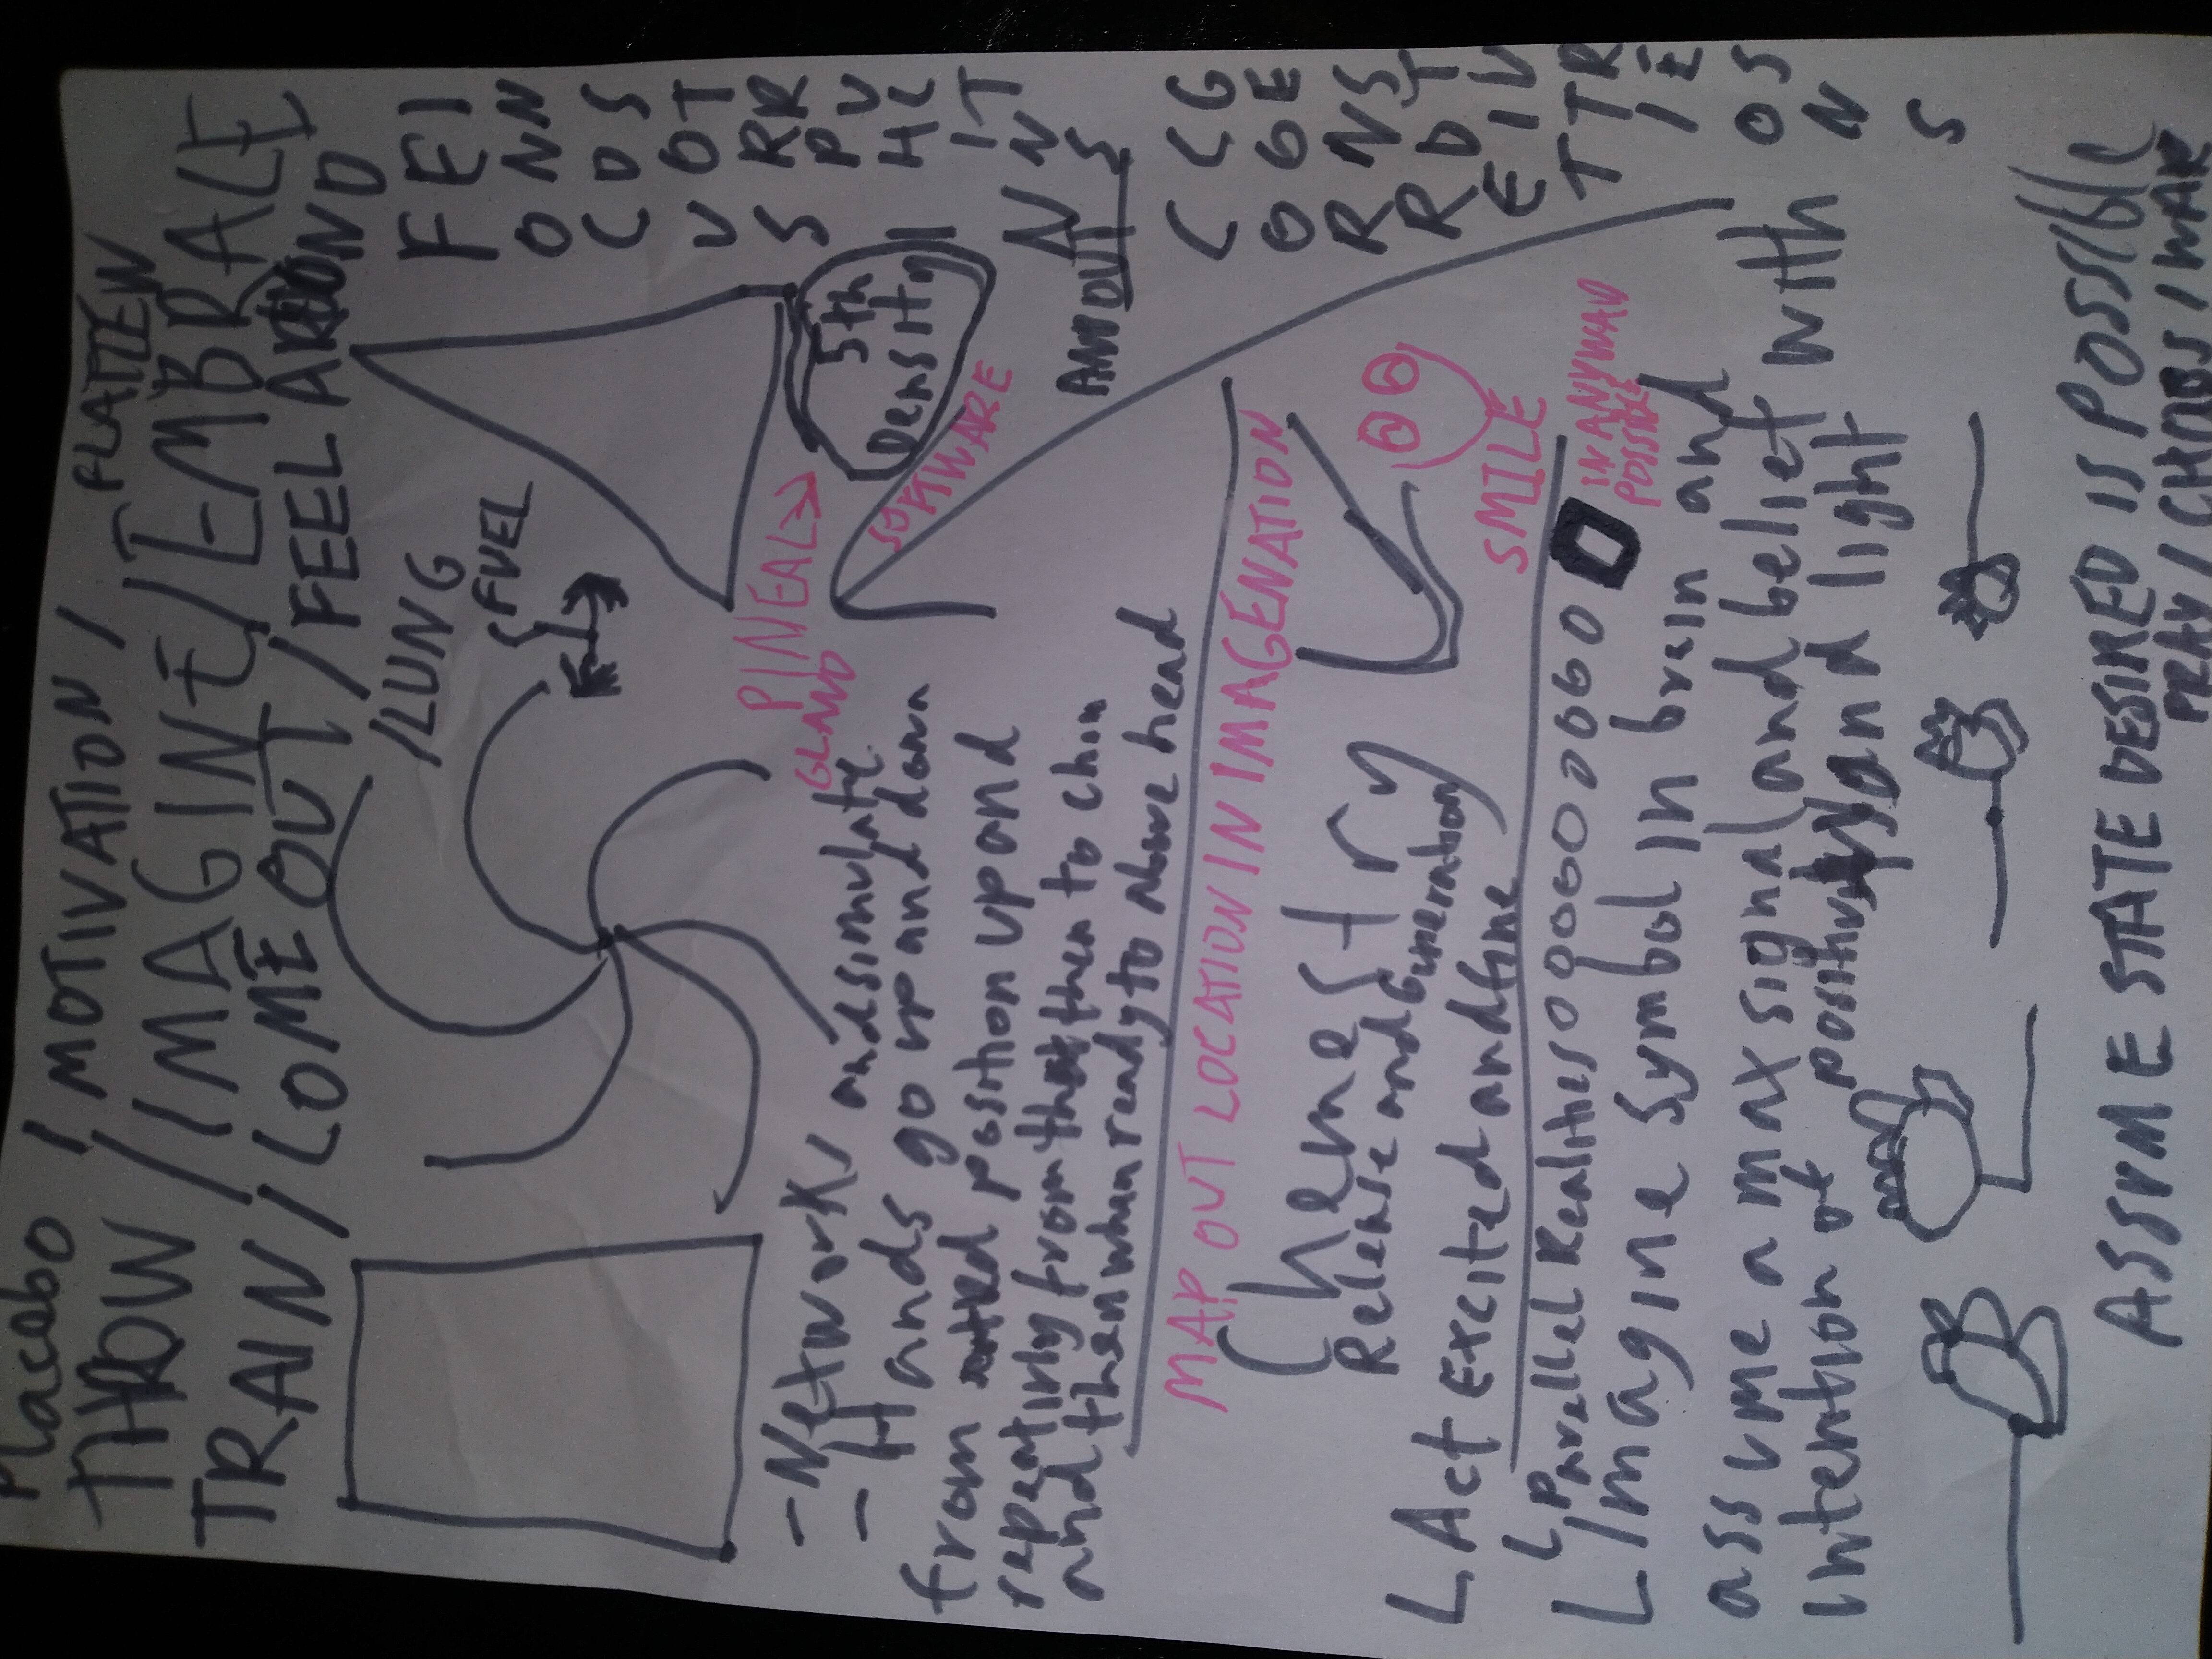 Placebo / MOTIVATION / FLATTEN
THROW / IMAGINE / EMBRACE
TRAIN / COME OUT / FEEL AROUND
/LUNG
FUEL
FOCUS
ENDORPHINS
INSTRUCT
PINEAL
GLAND
5th
Density
SOFTWARE
AMOUT
- Network and simulate
- Hands go up and down
from position up and
repeating from then to chin
and then when ready to above head
CORRECT
GESTURES
MAP OUT LOCATION IN IMAGENATION
Chemestry
Release and Generation
L Act Excited and fine
SMILE
IN ANYWAY
POSSIBLE
L Parellel Realities 000000000
L Imagine Symbol in brain and
assume a max signal and belief with
intention of and light
ASSUME STATE DESIRED IS POSSIBLE
PRAY /